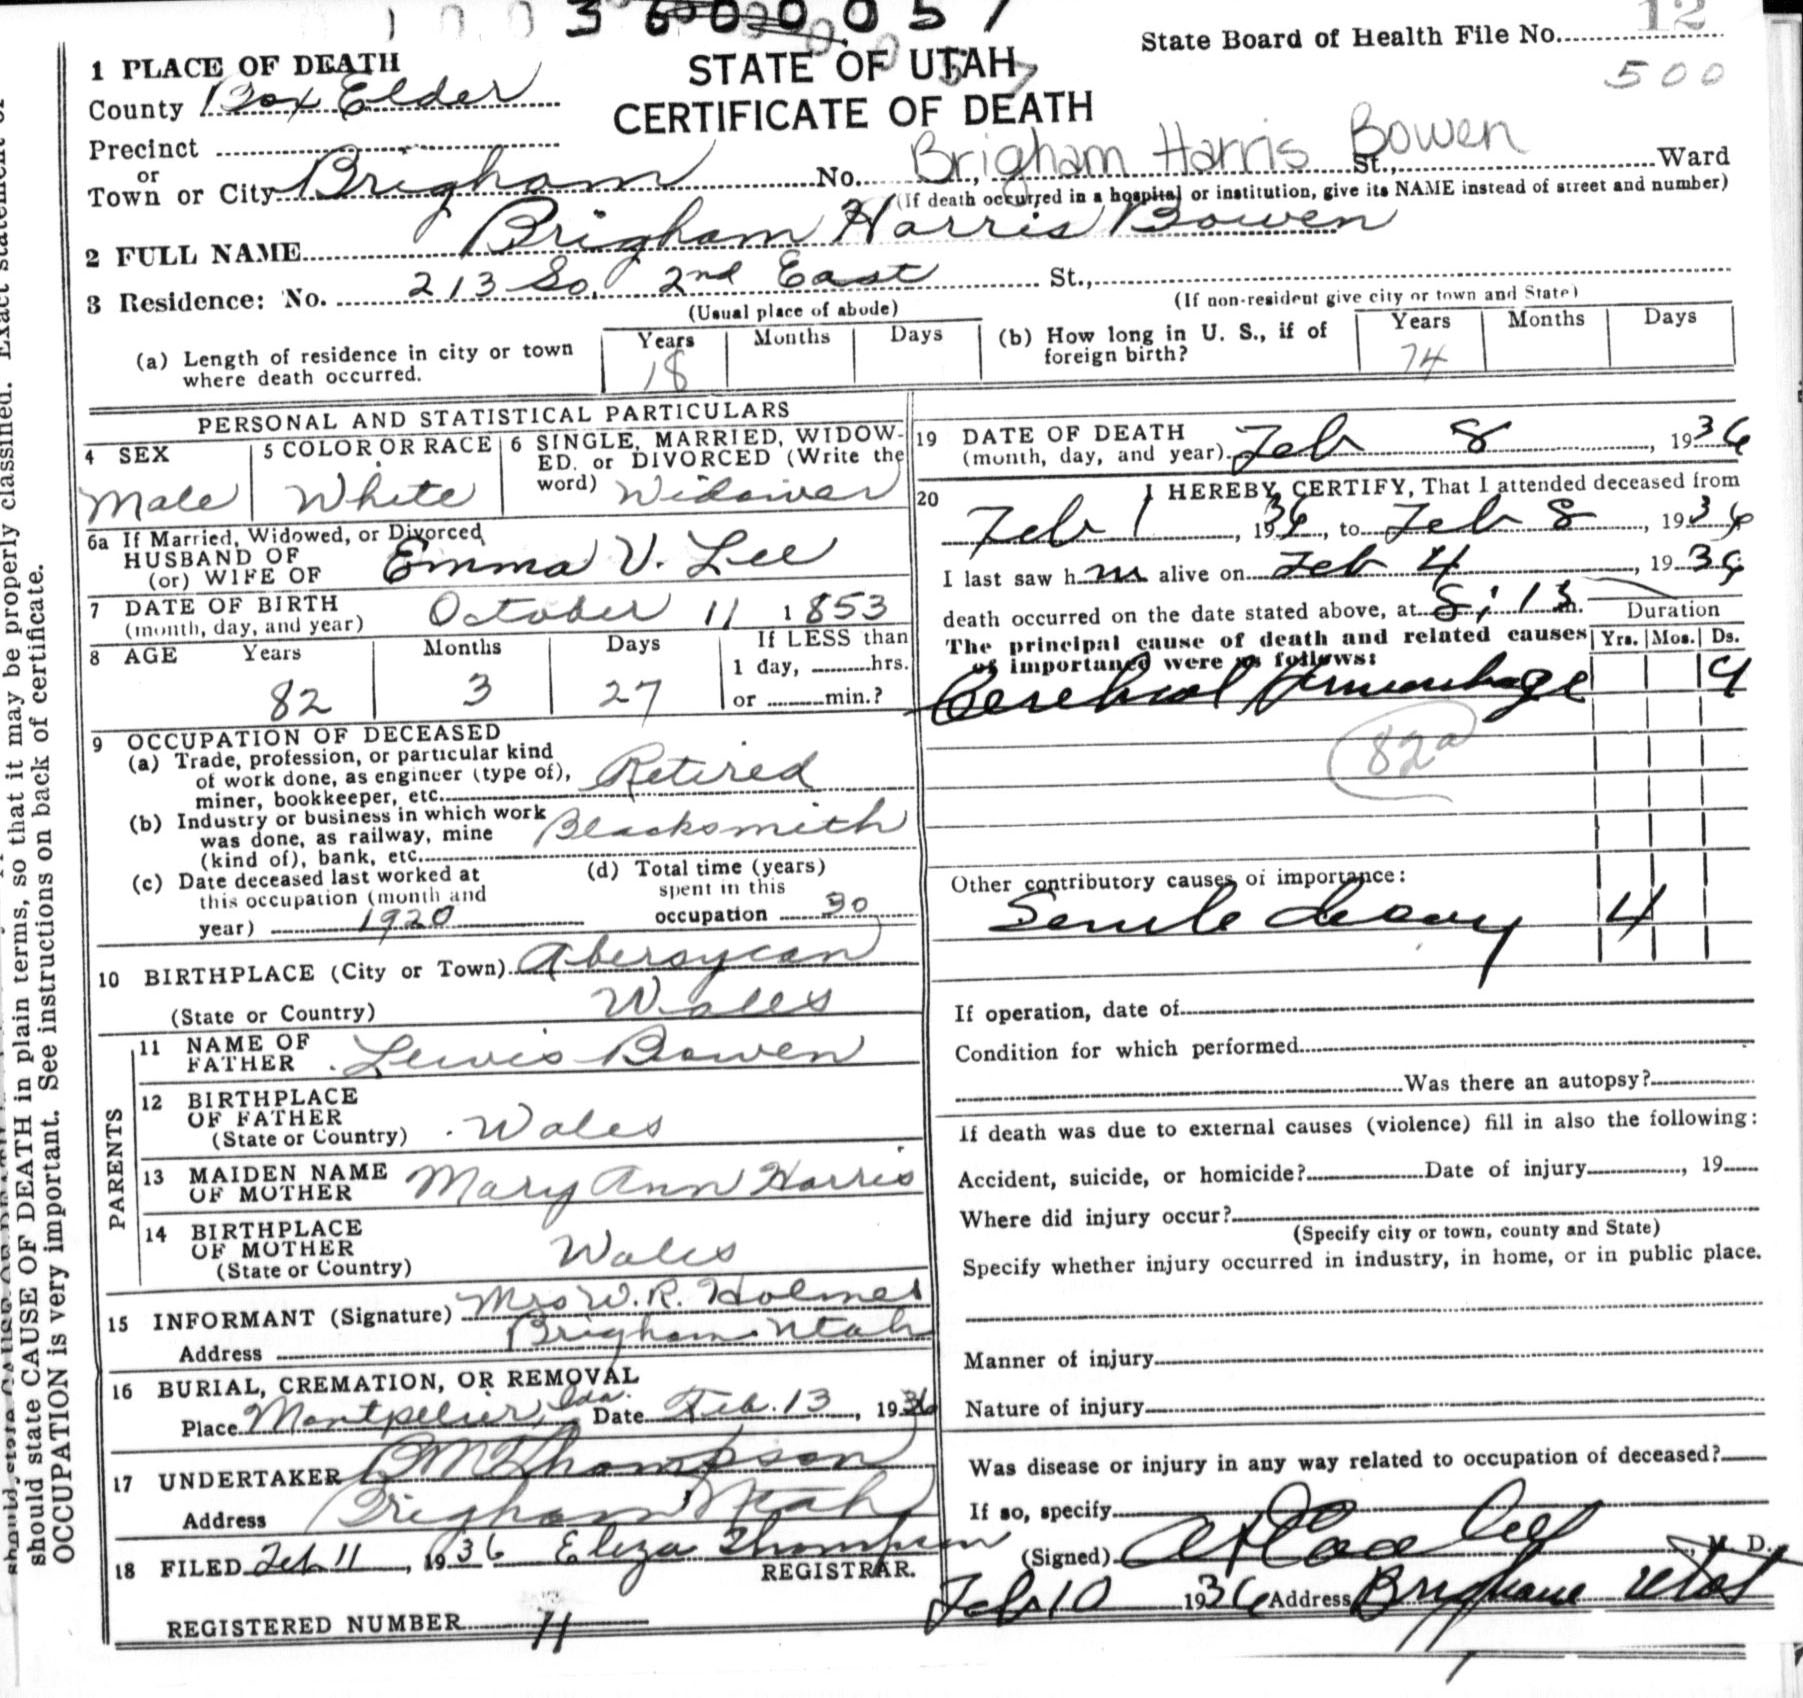 State Board of Health File No. 12
500
1 PLACE OF DEATH
STATE OF UTAH
County Box Elder
CERTIFICATE OF DEATH
Precinct
Brigham Harris Bowen
or
Town or City Brigham No. St., Ward
(If death occurred in a hospital or institution, give its NAME instead of street and number)
2 FULL NAME Brigham Harris Bowen
3 Residence: No. 213 So. 2nd East St.,
(Usual place of abode) (If non-resident give city or town and State)
(a) Length of residence in city or town where death occurred. Years 18 Months Days
(b) How long in U. S., if of foreign birth? Years 74 Months Days
PERSONAL AND STATISTICAL PARTICULARS
4 SEX Male
5 COLOR OR RACE White
6 SINGLE, MARRIED, WIDOW-
ED. or DIVORCED (Write the
word) Widower
6a If Married, Widowed, or Divorced
HUSBAND OF
(or) WIFE OF Emma V. Lee
7 DATE OF BIRTH
(month, day, and year) October 11 1853
8 AGE Years 82 Months 3 Days 27
If LESS than
1 day, hrs.
or min.?
9 OCCUPATION OF DECEASED
(a) Trade, profession, or particular kind
of work done, as engineer (type of),
miner, bookkeeper, etc. Retired
(b) Industry or business in which work
was done, as railway, mine
(kind of), bank, etc. Blacksmith
(c) Date deceased last worked at
this occupation (month and
year) 1920
(d) Total time (years)
spent in this
occupation 30
10 BIRTHPLACE (City or Town) Abersycan
(State or Country) Wales
PARENTS
11 NAME OF
FATHER Lewis Bowen
12 BIRTHPLACE
OF FATHER
(State or Country) Wales
13 MAIDEN NAME
OF MOTHER Mary Ann Harris
14 BIRTHPLACE
OF MOTHER
(State or Country) Wales
15 INFORMANT (Signature) Mrs W. R. Holmes
Address Brigham Utah
16 BURIAL, CREMATION, OR REMOVAL
Place Montpelier, Ida. Date Feb. 13, 1936
17 UNDERTAKER B M Thompson
Address Brigham, Utah
18 FILED Feb 11, 1936 Eliza Thompson
REGISTRAR.
REGISTERED NUMBER 11
19 DATE OF DEATH
(month, day, and year) Feb 8, 1936
20 I HEREBY CERTIFY, That I attended deceased from
Feb 1, 1936, to Feb 8, 1936
I last saw h m alive on Feb 4, 1936
death occurred on the date stated above, at 8:15 m.
Duration
The principal cause of death and related causes
of importance were as follows:
Yrs. Mos. Ds.
Cerebral Hemorrhage 9
82a
Other contributory causes of importance:
Senile decay 4
If operation, date of
Condition for which performed
Was there an autopsy?
If death was due to external causes (violence) fill in also the following:
Accident, suicide, or homicide? Date of injury, 19
Where did injury occur?
(Specify city or town, county and State)
Specify whether injury occurred in industry, in home, or in public place.
Manner of injury
Nature of injury
Was disease or injury in any way related to occupation of deceased?
If so, specify
(Signed) M. D.
Feb 10 1936 Address Brigham Utah
should state CAUSE OF DEATH in plain terms, so that it may be properly classified. Exact statement of
OCCUPATION is very important. See instructions on back of certificate.